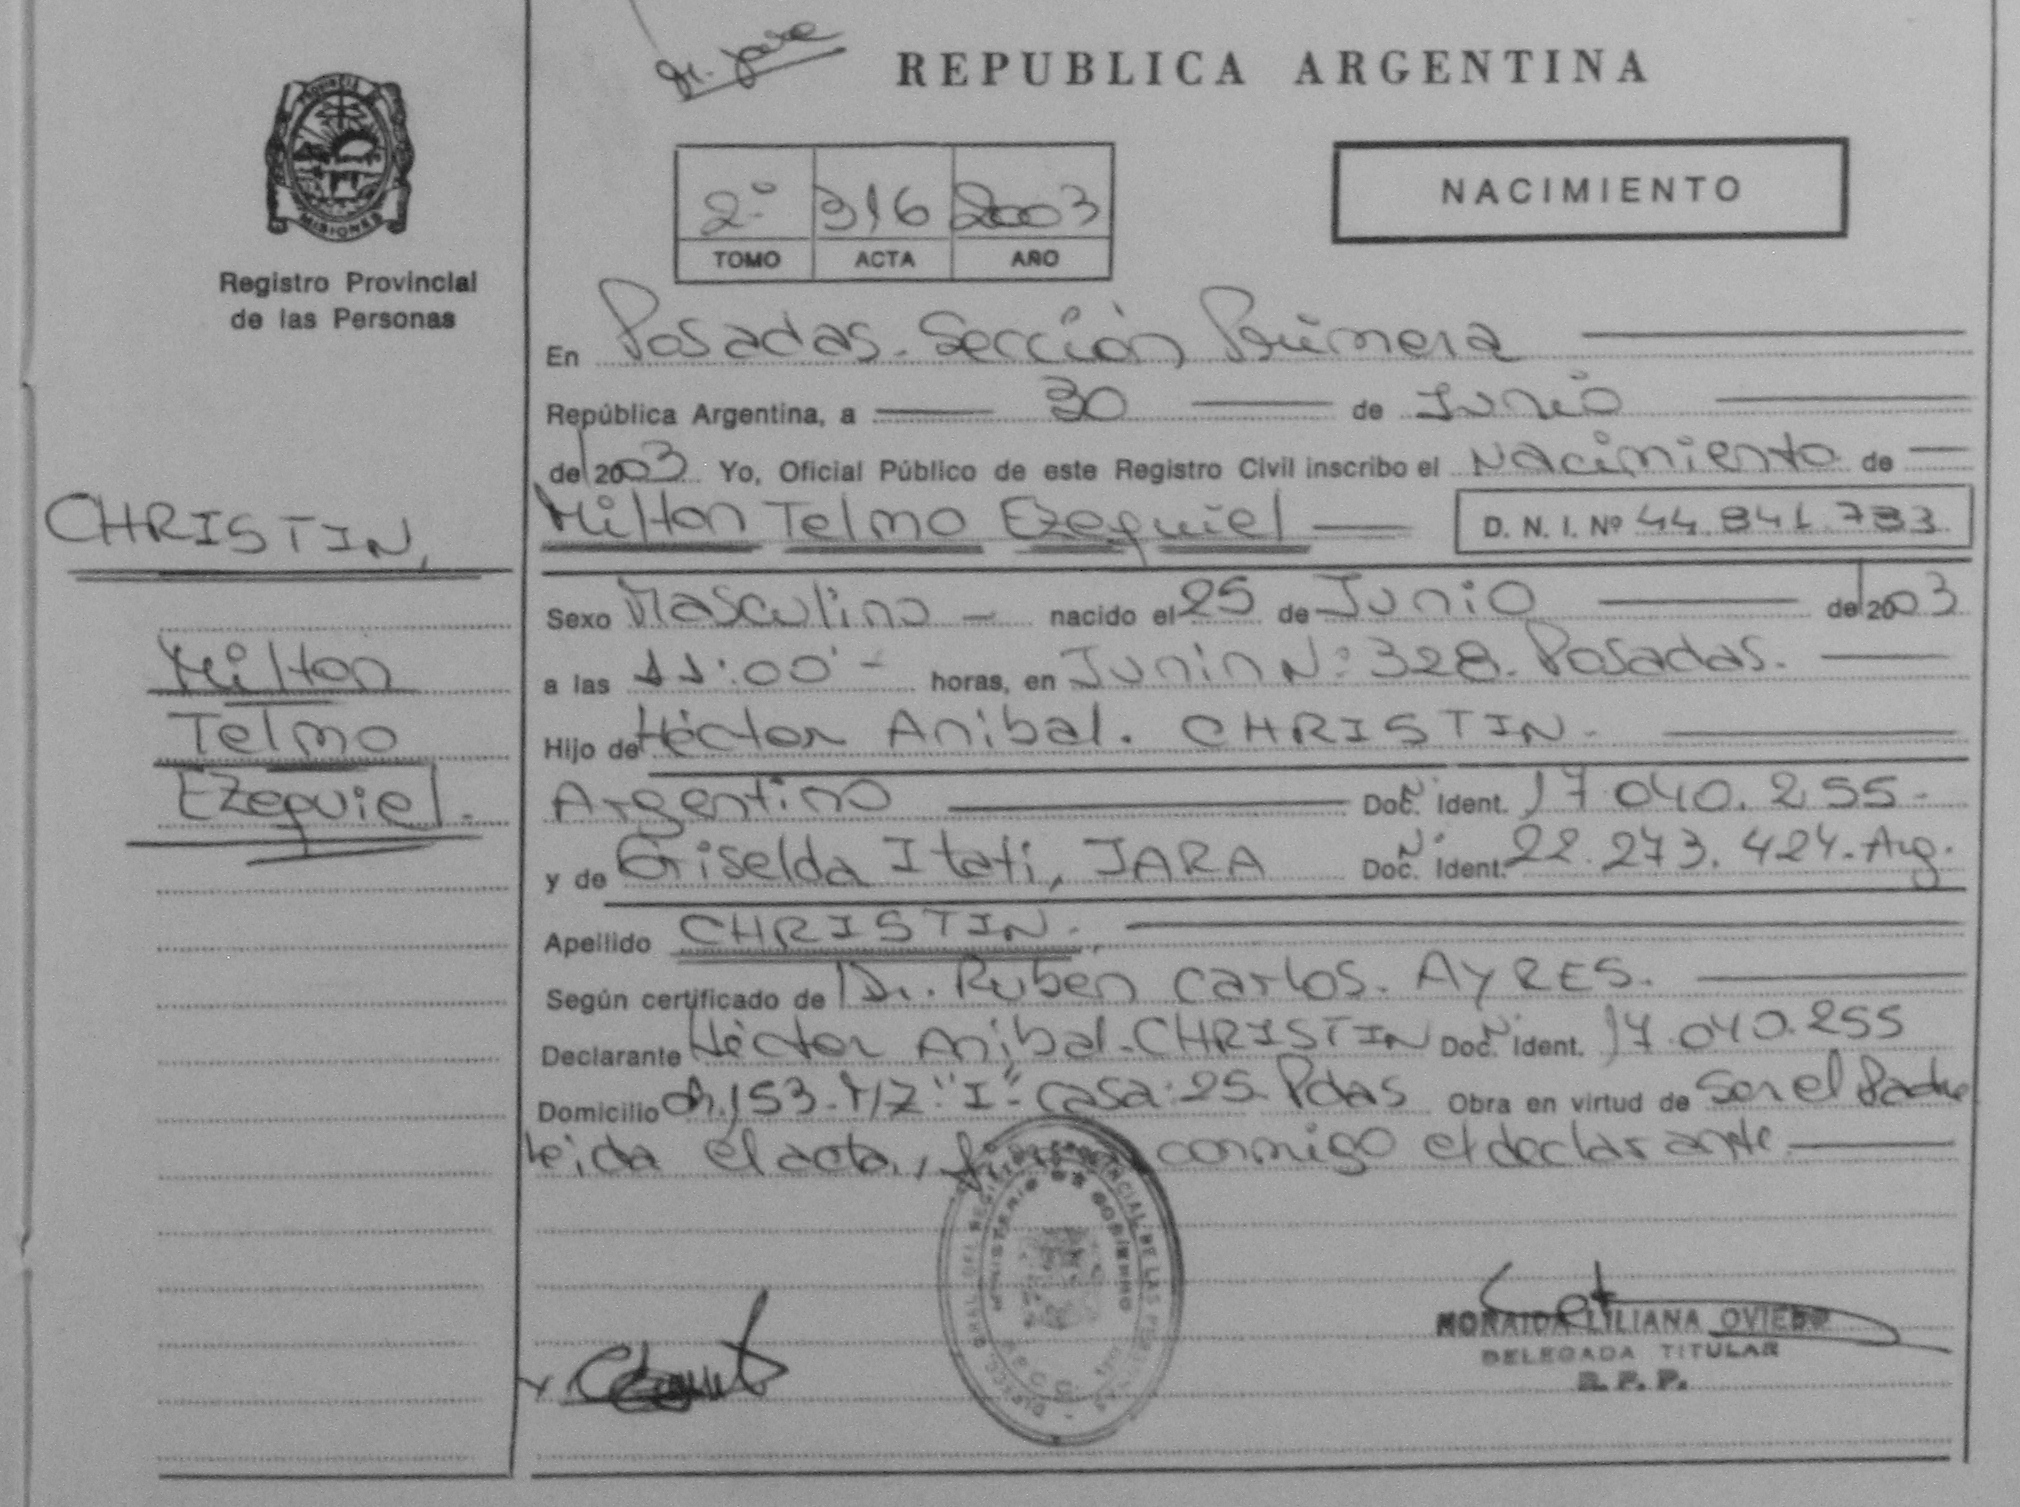 REPUBLICA ARGENTINA
PROVINCIA DE
MISIONES
Registro Provincial
de las Personas
NACIMIENTO
2º 316 2003
TOMO ACTA AÑO
En Posadas. Sección Primera
República Argentina, a 30 de Junio
de 2003 Yo, Oficial Público de este Registro Civil inscribo el Nacimiento de
CHRISTIN,
Milton Telmo Ezequiel D. N. I. Nº 44.841.783
Sexo Masculino nacido el 25 de Junio de 2003
Milton
a las 11:00 horas, en Junin Nº: 328. Posadas.
Telmo
Hijo de Héctor Anibal. CHRISTIN.
Ezequiel.
Argentino Doc. Ident. 17.040.255.
y de Griselda Itati, JARA Doc. Ident. 22.273.424. Arg.
Apellido CHRISTIN.
Según certificado de Dr. Ruben Carlos. AYRES.
Declarante Héctor Anibal. CHRISTIN Doc. Ident. 17.040.255
Domicilio Ch. 153. Mz "I" casa: 25. Pdas Obra en virtud de Ser el Padre
leida el acta, firma conmigo el declarante
MINISTERIO DE GOBIERNO
LILIANA OVIEDO
DELEGADA TITULAR
R. P. P.